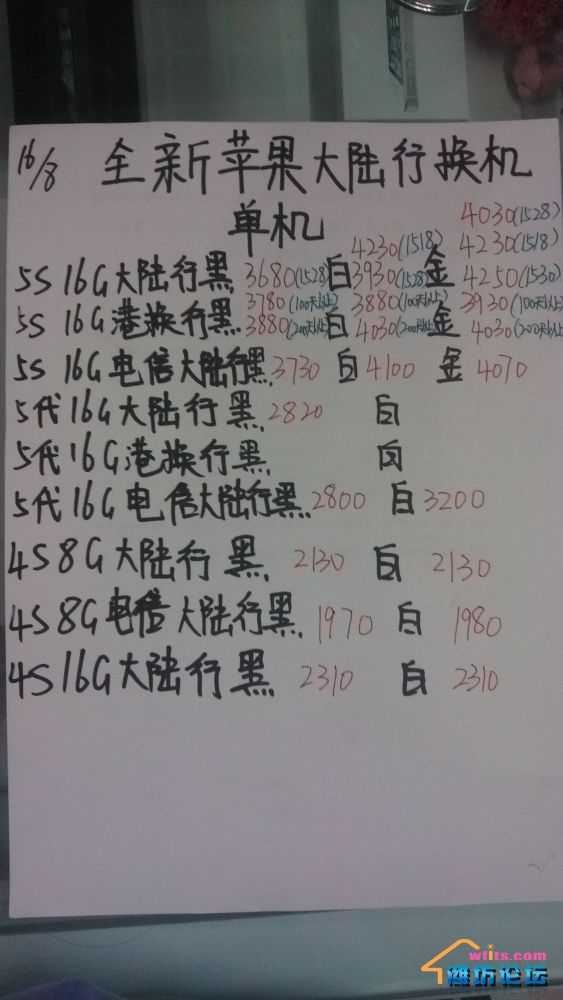 16/8 全新苹果大陆行换机
单机
4030(1528)
4230(1518) 4230(1518)
5S 16G大陆行黑 3680(1528) 白 3930(1528) 金 4250(1530)
3780(100天以上) 3880(100天以上) 3930(100天以上)
5S 16G港换行黑 3880(200天以上) 白 4030(200天以上) 金 4030(200天以上)
5S 16G电信大陆行黑 3730 白 4100 金 4070
5代16G大陆行黑 2820 白
5代16G港换行黑 白
5代16G电信大陆行黑 2800 白 3200
4S 8G大陆行黑 2130 白 2130
4S 8G电信大陆行黑 1970 白 1980
4S 16G大陆行黑 2310 白 2310
wfits.com
潍坊论坛